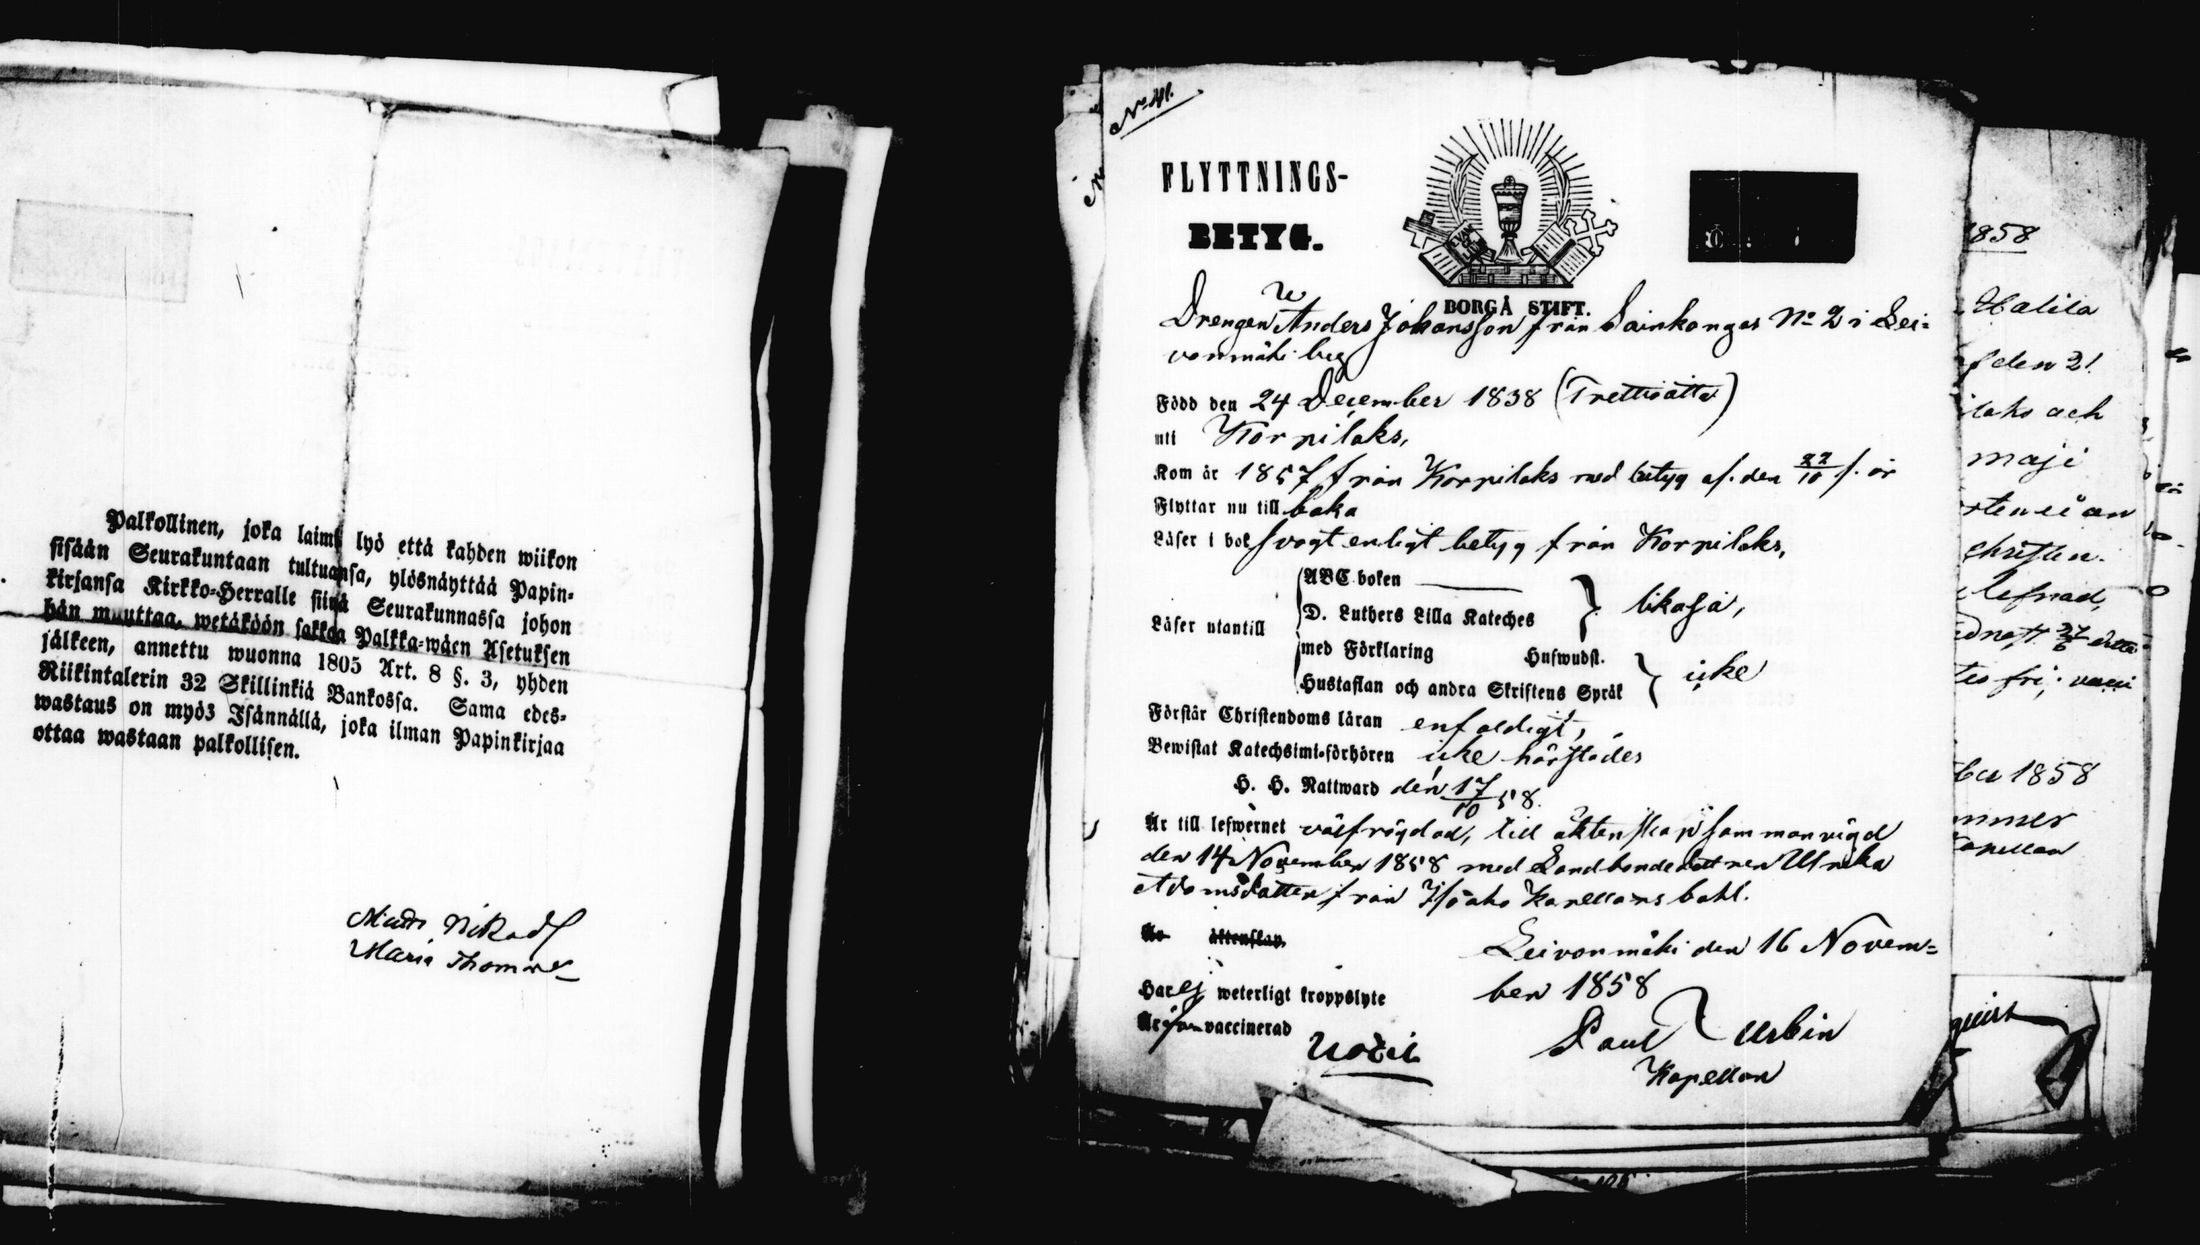 Palkollinen, joka laimi lyö että kahden wiikon
sisään Seurakuntaan tultuansa, ylösnäyttää Papin-
kirjansa Kirkko-Herralle siinä Seurakunnassa johon
hän muuttaa, wetäköön sakkoa Palkka-wäen Asetuksen
jälkeen, annettu wuonna 1805 Art. 8 §. 3, yhden
Riikintalerin 32 Skillinkiä Bankossa. Sama edes-
wastaus on myös Isännällä, joka ilman Papinkirjaa
ottaa wastaan palkollisen.
Maria
No 41.
FLYTTNINGS-
BETYG.
BORGÅ STIFT.
Drengen Anders Johansson från Sainkangas No 2 i Lei-
vonmäki by
Född den 24 December 1838 (Trettioåtta)
uti Korpilaks,
Kom år 1857 från Korpilaks med betyg af den 22/10 s. år
Flyttar nu till baka
Läser i bok svagt enligt betyg från Korpilaks,
Läser utantill
ABC-boken
D. Luthers Lilla Kateches
likaså,
med Förklaring Huswudst.
Hustaflan och andra Skriftens Språk
icke
Förstår Christendoms läran enfaldigt,
Bewistat Katechismi-förhören icke härstädes
H. H. Nattward den 17/10 58.
Är till lefwernet välfrägdad, till äktenskap sammanvigd
den 14 November 1858 med Landbondedottren Ulrika
Adamsdotter från Kapellans bohl.
Är äktenskap.
Leivonmäki den 16 Novem-
ber 1858
Har ej weterligt kroppslyte
Är vaccinerad
Paul Urbin
Kapellan
1858
Halila
den 21
och
maji
Christen.
lefnad,
27/6
fri;
ber 1858
Kapellan